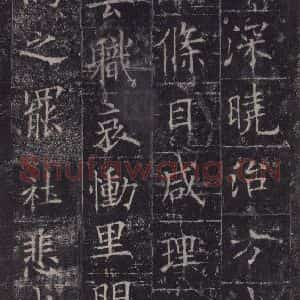 深曉治方
條目咸理
職哀慟里
之罷社悲
Shufawang.CN